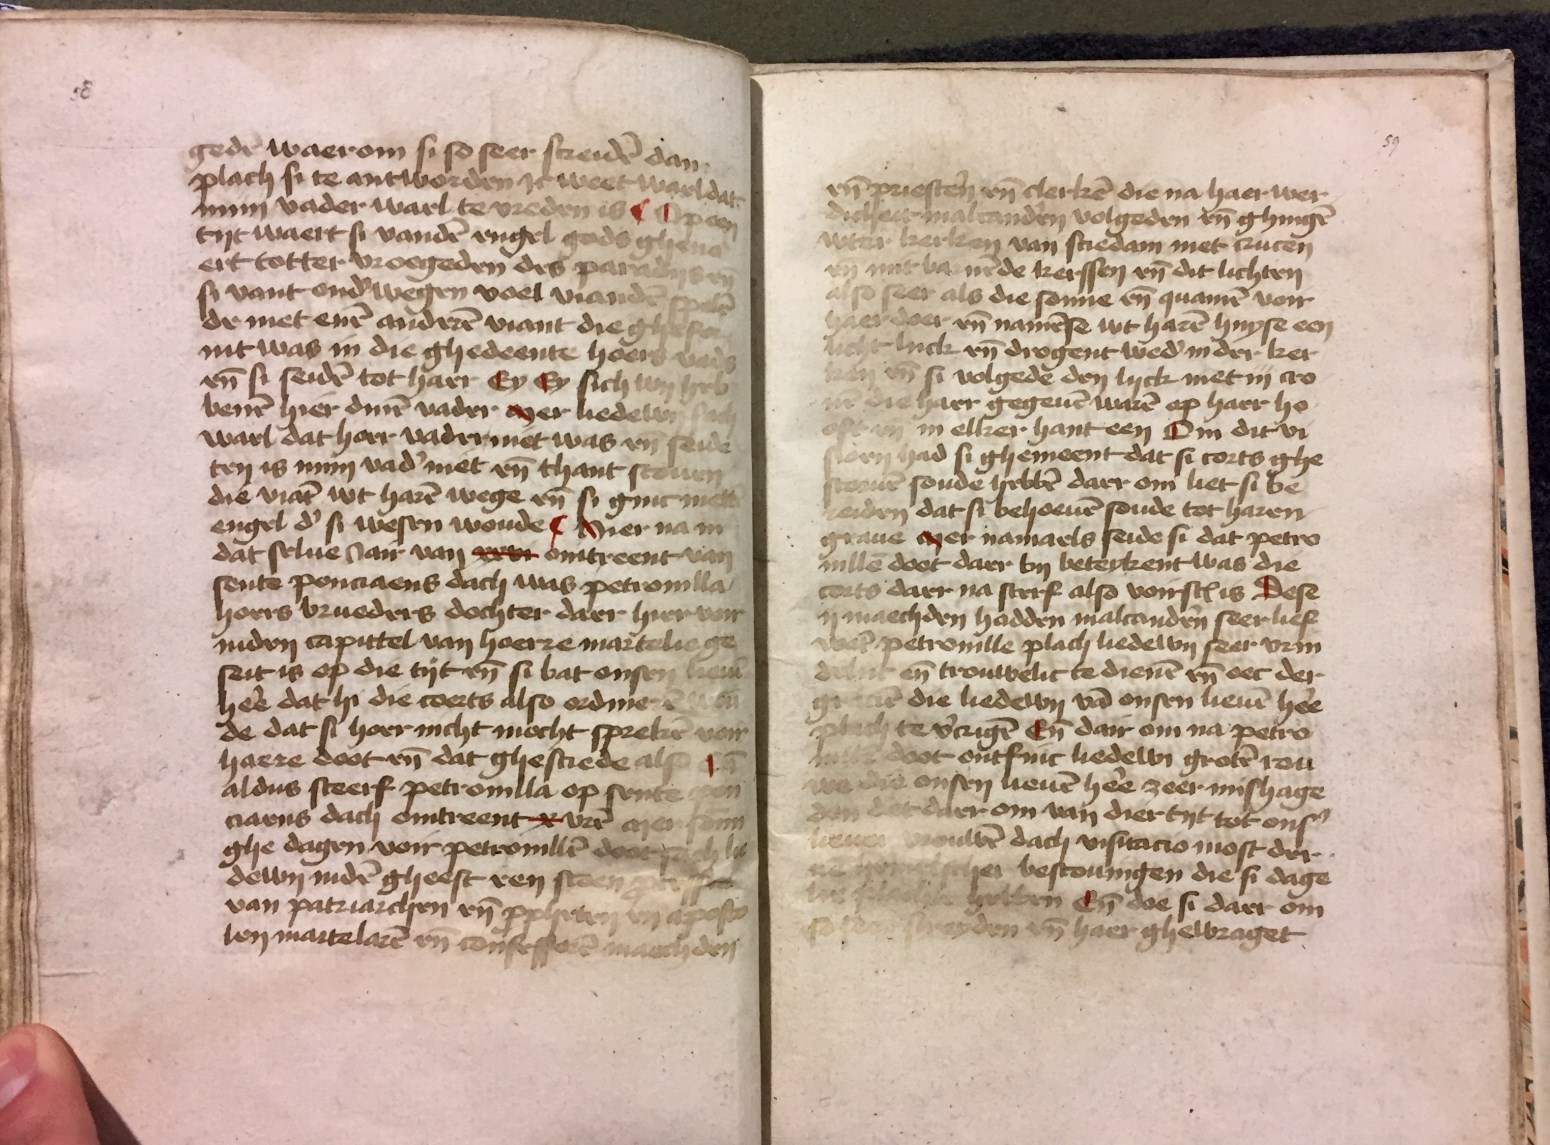 58
gedē waerom si so seer screidē dan
plach si te antworden ic weet wael dat
mijn vader wael te vreden is Op een
tijt waert si vandē engel gods gheuo
ert totter vroegeden des paradijs eñ
si vant ond' wegen voel viandē spelē
de met enē anderē viant die
nit was in die ghedeente hoers vad's
eñ si seidē tot haer Ey Ey sich wij heb
benē hier dinē vader Mer liedewi sach
wael dat hoer vader niet was eñ seide
ten is mijn vad' niet eñ thant scouen
die viāt wt harē wege eñ si ginc mettē
engel d' si wesen woude Hier na in
dat selue Jair van xxvi omtreent van
sente ponciaens dach was petronilla
hoers brueders dochter daer hier voir
inden capittel van hoerre martelie ge
seit is op die tijt eñ si bat onsen lieuē
heē dat hi die coerts also ordineerē wou
de dat si hoer nicht mocht sprekē voir
haere doot eñ dat ghesciede also Eñ
aldus sterf petronilla op sente pon
ciaens dach omtreent x vrē Mer som
ghe dagen voir petronillē doot sach lie
dewij indē gheest een scoen
van patriarchen eñ propheten eñ aposto
len martelarē eñ confessorē maechden
59
eñ priesterē eñ clerkē die na haer wer
dicheit malcanderē volgeden eñ ghingē
wter kerken van sciedam met crucen
eñ mit barnēde kerssen eñ dit lichten
also seer als die sonne eñ quamē voir
haer doer eñ namēse wt harē huyse een
licht lijck eñ drogent wed' inder ker
ken eñ si volgede den lijck met iij cro
nē die haer gegeuē warē op haer ho
oft eñ in elker hant een Om dit vi
sioen had si ghemeent dat si corts ghe
storuē soude hebbē daer om liet si be
reiden dat si behoeuē soude tot haren
graue Mer namaels seide si dat petro
nillē doot daer bij beteykent was die
corts daer na sterf also voirsc is Dese
ij maechden hadden malcanderē seer lief
want petronille plach liedewij seer vrin
delic eñ trouwelic te dienē eñ oec der
graciēn die liedewij vā onsen lieuē heē
plach te v'crigē Eñ dair om na petro
nillē doot ontfinc liedewi grotē rou
we die onsen lieuē heē zeer mishage
den dat daer om van dier tijt tot ons'
lieuer vrouwē dach visitacio most der
uē hemelscher vestouingen die si dage
lix plach te hebben Eñ doe si daer om
so seer screyden eñ haer ghewraget